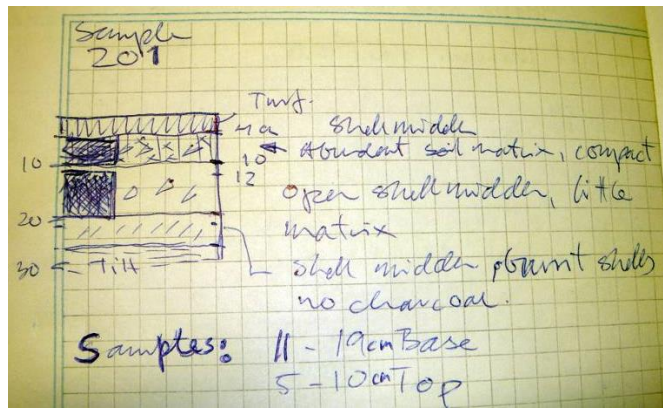 Sample
201
Turf.
4cm
Shell midden
10
10
Abundant soil matrix, compact
12
Open shell midden, little
matrix
20
30
Till
Shell midden burnt shells
no charcoal.
Samples: 11 - 19cm Base
5 - 10cm Top